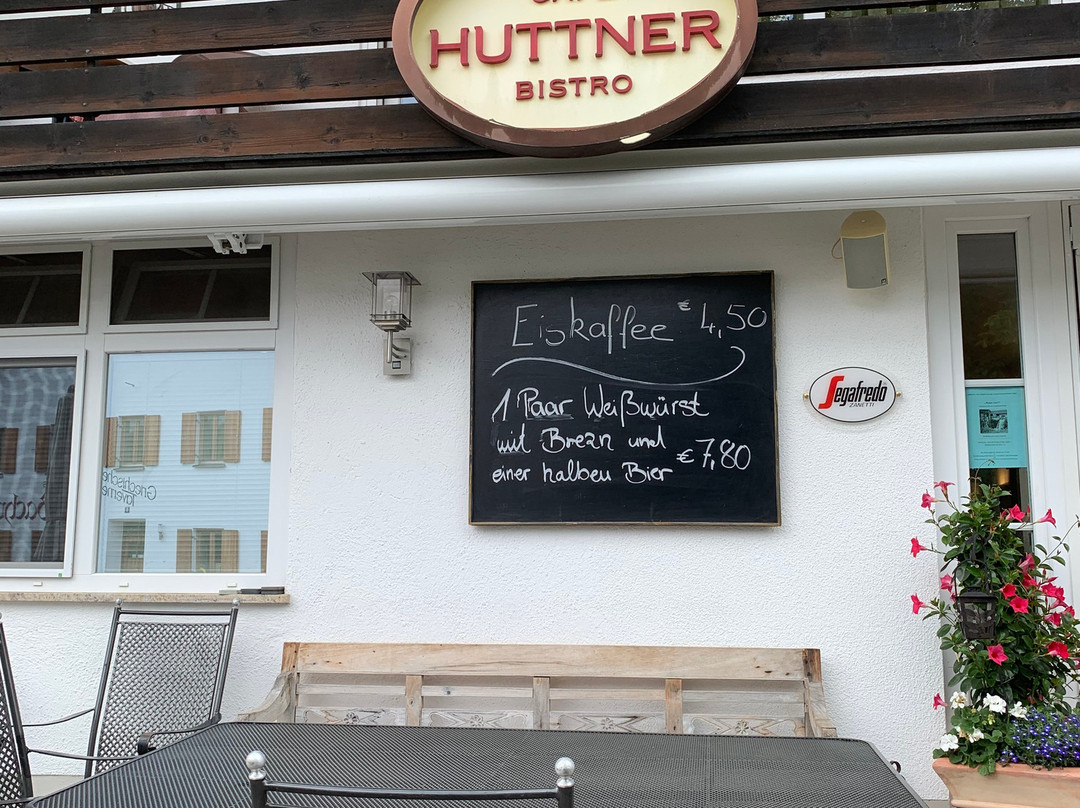 HUTTNER
BISTRO
Eiskaffee € 4,50
1 Paar Weißwürst
mit Brezn und
einer halben Bier € 7,80
Segafredo
ZANETTI
Griechische
Taverne